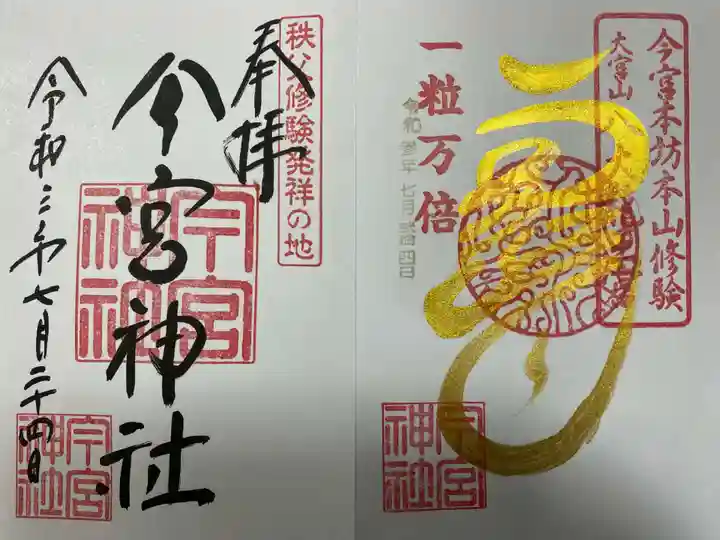 秩父修験発祥の地
奉拝
今宮神社
今宮神社
令和三年七月二十四日
今宮神社
今宮本坊本山修験
大宮山
一粒万倍
令和参年七月弐拾四日
今宮神社